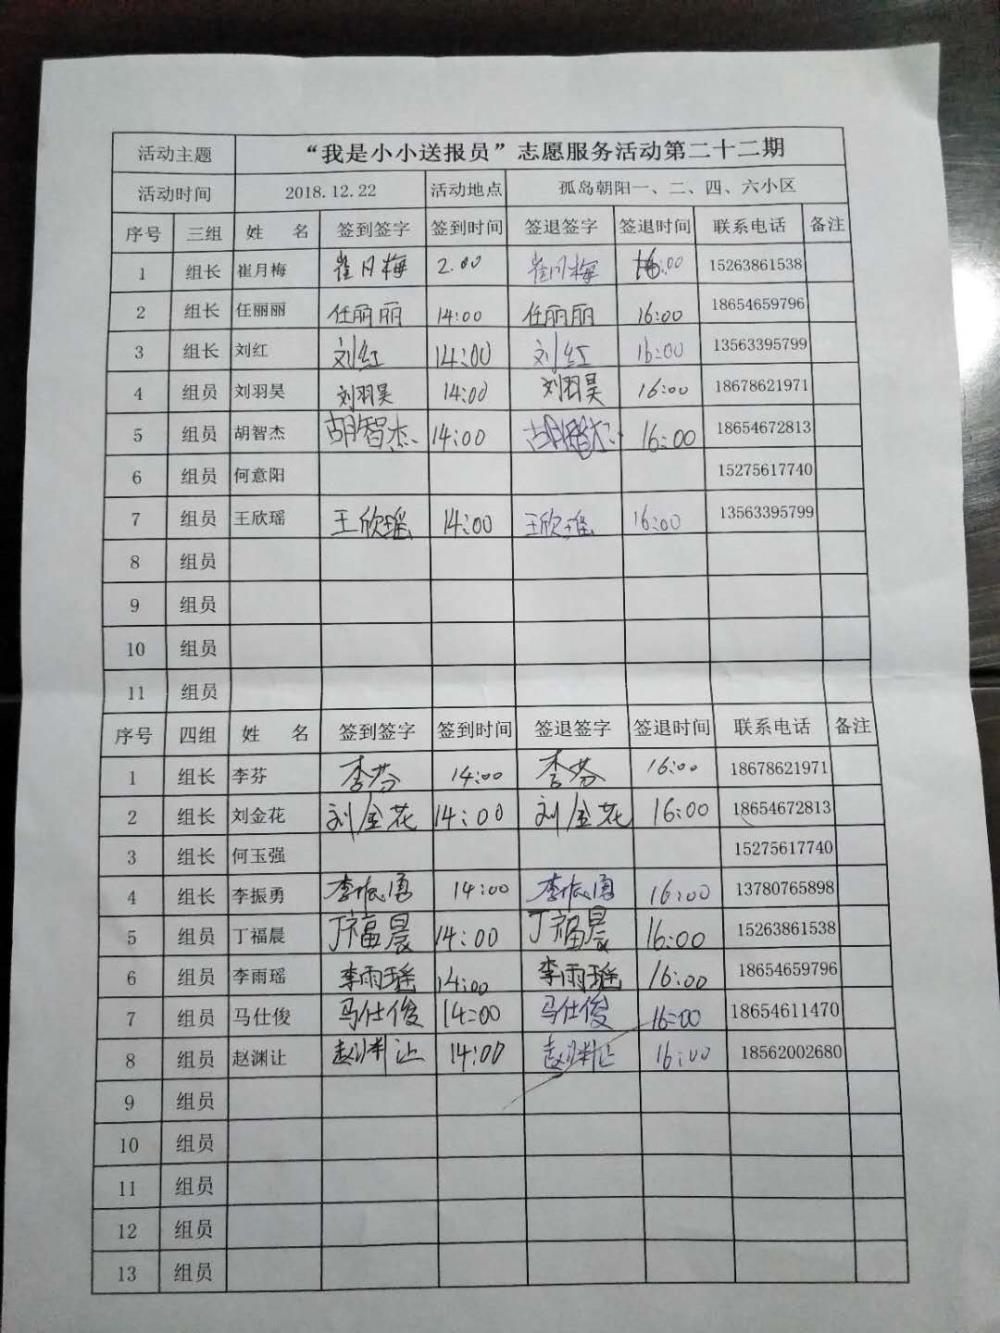 活动主题 “我是小小送报员”志愿服务活动第二十二期
活动时间 2018.12.22 活动地点 孤岛朝阳一、二、四、六小区
序号 三组 姓 名 签到签字 签到时间 签退签字 签退时间 联系电话 备注
1 组长 崔月梅 崔月梅 2.00 崔月梅 16:00 15263861538
2 组长 任丽丽 任丽丽 14:00 任丽丽 16:00 18654659796
3 组长 刘红 刘红 14:00 刘红 16:00 13563395799
4 组员 刘羽昊 刘羽昊 14:00 刘羽昊 16:00 18678621971
5 组员 胡智杰 胡智杰 14:00 胡智杰 16:00 18654672813
6 组员 何意阳 15275617740
7 组员 王欣瑶 王欣瑶 14:00 王欣瑶 16:00 13563395799
8 组员
9 组员
10 组员
11 组员
序号 四组 姓 名 签到签字 签到时间 签退签字 签退时间 联系电话 备注
1 组长 李芬 李芬 14:00 李芬 16:00 18678621971
2 组长 刘金花 刘金花 14:00 刘金花 16:00 18654672813
3 组长 何玉强 15275617740
4 组长 李振勇 李振勇 14:00 李振勇 16:00 13780765898
5 组员 丁福晨 丁福晨 14:00 丁福晨 16:00 15263861538
6 组员 李雨瑶 李雨瑶 14:00 李雨瑶 16:00 18654659796
7 组员 马仕俊 马仕俊 14:00 马仕俊 16:00 18654611470
8 组员 赵渊让 赵渊让 14:00 赵渊让 16:00 18562002680
9 组员
10 组员
11 组员
12 组员
13 组员